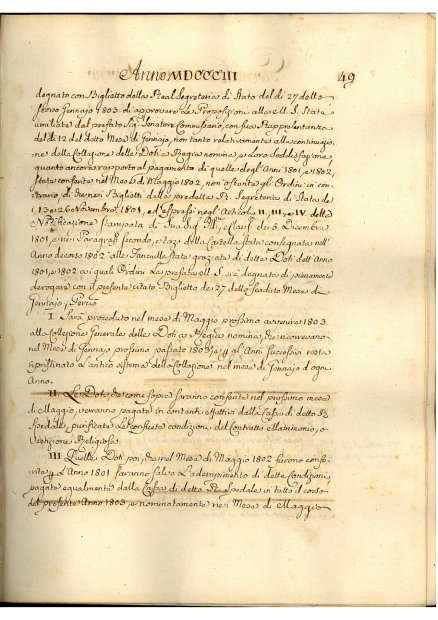 Anno MDCCCIII 49
degnato con Biglietto della Real Segreteria di Stato del dì 27 dello
stesso Gennajo 1803. di approvare le Proposizioni alla M. S. State
umiliate dal prefato Sig. Senatore Commissario, con sua Rappresentanza
del dì 12 del detto Mese di Gennajo, non tanto relativamente alla continuazio-
ne della Collazione delle Doti a Regia nomina, e loro soddisfazione,
quanto ancora rapporto al pagamento di quelle degl'Anni 1801, e 1802,
state conferite nel Mese di Maggio 1802, non ostante gli Ordini in con-
trario, di che nei Biglietti della predetta R. Segreteria di Stato de
i 13 e 26 Novembre 1801, ed espressi negl'Articoli II, III, e IV della
Notificazione stampata di Sua Sig. Ill. e Clariss. de 5 Dicembre
1801, e nei Paragrafi secondo, e terzo della Cartella stata consegnata nell'
Anno decorso 1802 alle Fanciulle state graziate di dette Doti dell'Anno
1801, e 1802 ai quali Ordini la prefata M. S. si è degnata di pienamente
derogare con il presente citato Biglietto de 27 dello scaduto Mese di
Gennajo, Perciò
I. Sarà proceduto nel mese di Maggio prossimo avvenire 1803
alla Collazione Generale delle Doti a Regia nomina, che ricorrevano
nel Mese di Gennajo prossimo passato 1803, e gl'Anni Successivi resta
ripristinato l'antico sistema della Collazione nel mese di Gennajo d'ogni
Anno.
II. Le Doti, che come sopra saranno conferite nel prossimo mese
di Maggio, verranno pagate in contanti effettivi dalla Cassa di detto R.
Spedale, purificate le consuete condizioni del Contratto Matrimonio, o
Vestizione Religiosa.
III. Quelle Doti poi, che nel Mese di Maggio 1802 furono confe-
rite, p. l'Anno 1801 saranno salvo l'adempimento di dette Condizioni,
pagate egualmente dalla Cassa di detto R. Spedale in tutto il corso
del presente Anno 1803, e nominatamente nei Mesi di Maggio